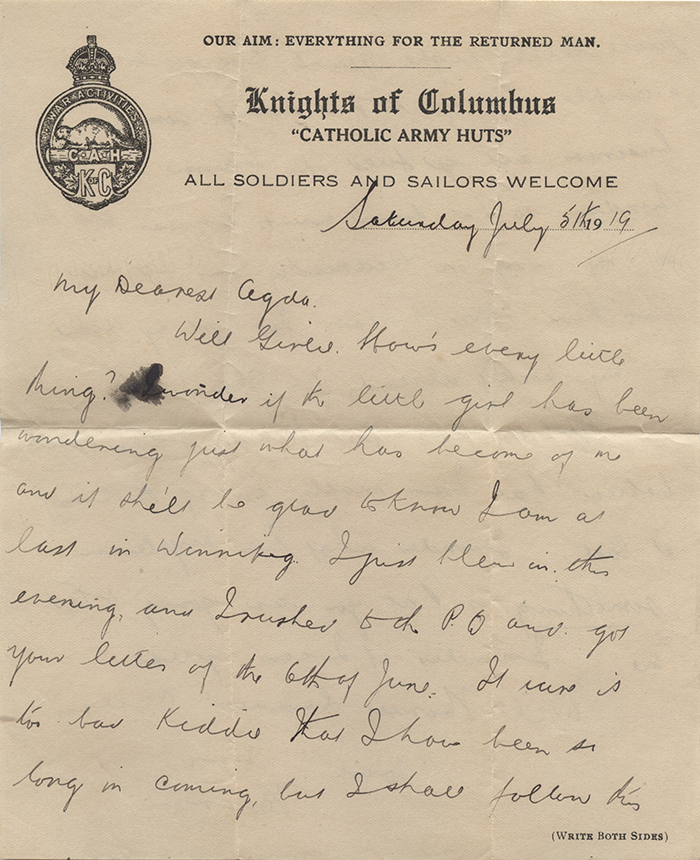 OUR AIM: EVERYTHING FOR THE RETURNED MAN.
WAR ACTIVITIES
C·A·H
K of C
Knights of Columbus
"CATHOLIC ARMY HUTS"
ALL SOLDIERS AND SAILORS WELCOME
Saturday July 5th 1919
My Dearest Agda.
Well Girlie. How's every little
thing? I wonder if the little girl has been
wondering just what has become of me
and if she'll be glad to know I am at
last in Winnipeg. I just blew in this
evening, and I rushed to the P.O and got
your letter of the 6th of June. It sure is
too bad Kiddie that I have been so
long in coming, but I shall follow this
(WRITE BOTH SIDES)